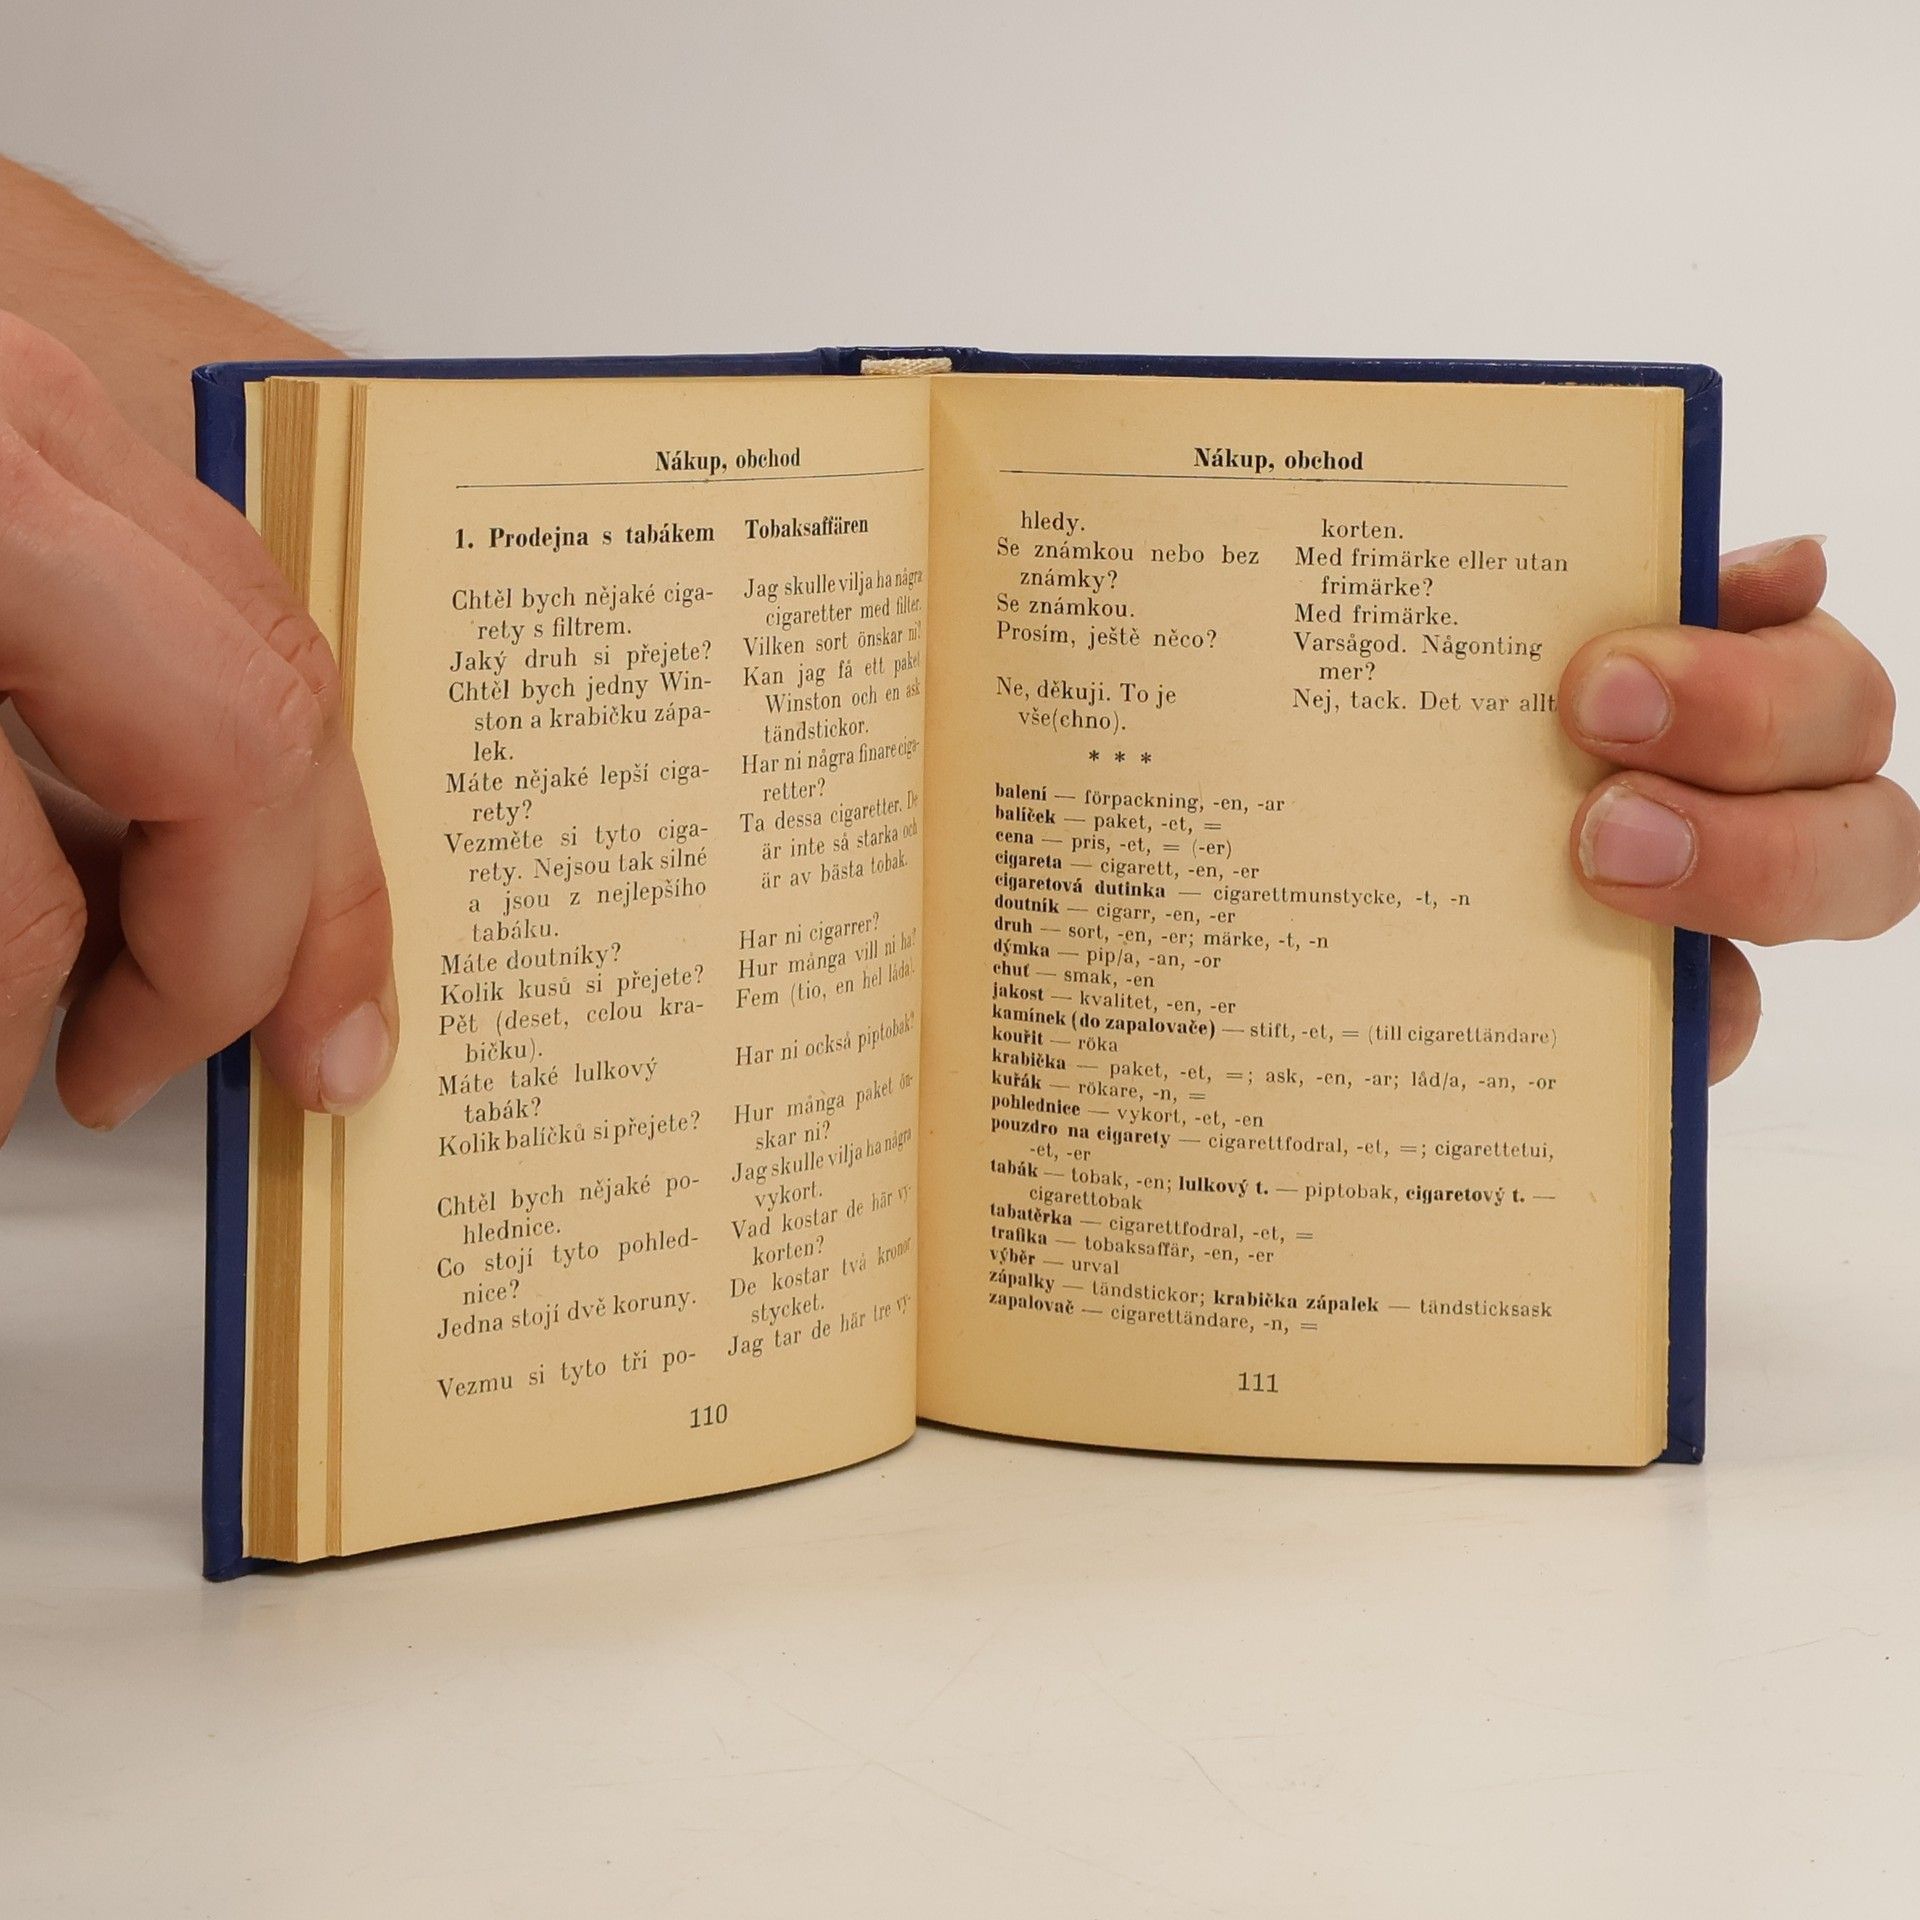 Nákup, obchod
1. Prodejna s tabákem
Chtěl bych nějaké ciga-
rety s filtrem.
Jaký druh si přejete?
Chtěl bych jedny Win-
ston a krabičku zápa-
lek.
Máte nějaké lepší ciga-
rety?
Vezměte si tyto ciga-
rety. Nejsou tak silné
a jsou z nejlepšího
tabáku.
Máte doutníky?
Kolik kusů si přejete?
Pět (deset, celou kra-
bičku).
Máte také lulkový
tabák?
Kolik balíčků si přejete?
Chtěl bych nějaké po-
hlednice.
Co stojí tyto pohled-
nice?
Jedna stojí dvě koruny.
Vezmu si tyto tři po-
Tobaksaffären
Jag skulle vilja ha några
cigaretter med filter.
Vilken sort önskar ni?
Kan jag få ett paket
Winston och en ask
tändstickor.
Har ni några finare ciga-
retter?
Ta dessa cigaretter. De
är inte så starka och
är av bästa tobak.
Har ni cigarrer?
Hur många vill ni ha?
Fem (tio, en hel låda).
Har ni också piptobak?
Hur många paket ön-
skar ni?
Jag skulle vilja ha några
vykort.
Vad kostar de här vy-
korten?
De kostar två kronor
stycket.
Jag tar de här tre vy-
110
Nákup, obchod
hledy.
Se známkou nebo bez
známky?
Se známkou.
Prosím, ještě něco?
Ne, děkuji. To je
vše(chno).
korten.
Med frimärke eller utan
frimärke?
Med frimärke.
Varsågod. Någonting
mer?
Nej, tack. Det var allt
* * *
balení — förpackning, -en, -ar
balíček — paket, -et, =
cena — pris, -et, = (-er)
cigareta — cigarett, -en, -er
cigaretová dutinka — cigarettmunstycke, -t, -n
doutník — cigarr, -en, -er
druh — sort, -en, -er; märke, -t, -n
dýmka — pip/a, -an, -or
chuť — smak, -en
jakost — kvalitet, -en, -er
kamínek (do zapalovače) — stift, -et, = (till cigarettändare)
kouřit — röka
krabička — paket, -et, =; ask, -en, -ar; låd/a, -an, -or
kuřák — rökare, -n, =
pohlednice — vykort, -et, -en
pouzdro na cigarety — cigarettfodral, -et, =; cigarettetui,
-et, -er
tabák — tobak, -en; lulkový t. — piptobak, cigaretový t. —
cigarettobak
tabatěrka — cigarettfodral, -et, =
trafika — tobaksaffär, -en, -er
výběr — urval
zápalky — tändstickor; krabička zápalek — tändsticksask
zapalovač — cigarettändare, -n, =
111